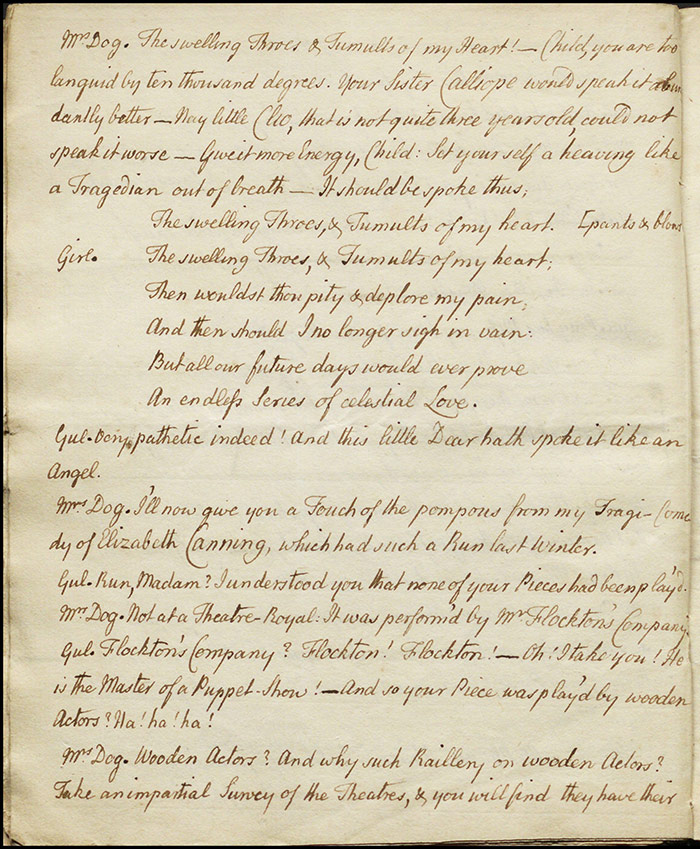 Mrs Dog. The swelling Throes & Tumults of my Heart! — Child, you are too
languid by ten thousand degrees. Your Sister Calliope would speak it abun
dantly better — Nay little Clio, that is not quite three years old, could not
speak it worse — Give it more Energy, Child: Set yourself a heaving like
a Tragedian out of breath — It should be spoke thus;
The swelling Throes, & Tumults of my heart. [pants & blows
Girl. The swelling Throes, & Tumults of my heart;
Then wouldst thou pity & deplore my pain,
And then should I no longer sigh in vain:
But all our future days would ever prove
An endless Series of celestial Love.
Gul. Very pathetic indeed! And this little Dear hath spoke it like an
Angel.
Mrs Dog. I'll now give you a Touch of the pompous from my Tragi-Come
dy of Elizabeth Canning, which had such a Run last Winter.
Gul. Run, Madam? I understood you that none of your Pieces had been play'd.
Mrs Dog. Not at a Theatre-Royal: It was perform'd by Mr Flockton's Company
Gul. Flockton's Company? Flockton! Flockton! — Oh! I take you! He
is the Master of a Puppet-Show! — And so your Piece was play'd by wooden
Actors? Ha! ha! ha!
Mrs Dog. Wooden Actors? And why such Raillery on wooden Actors?
Take an impartial Survey of the Theatres, & you will find they have their